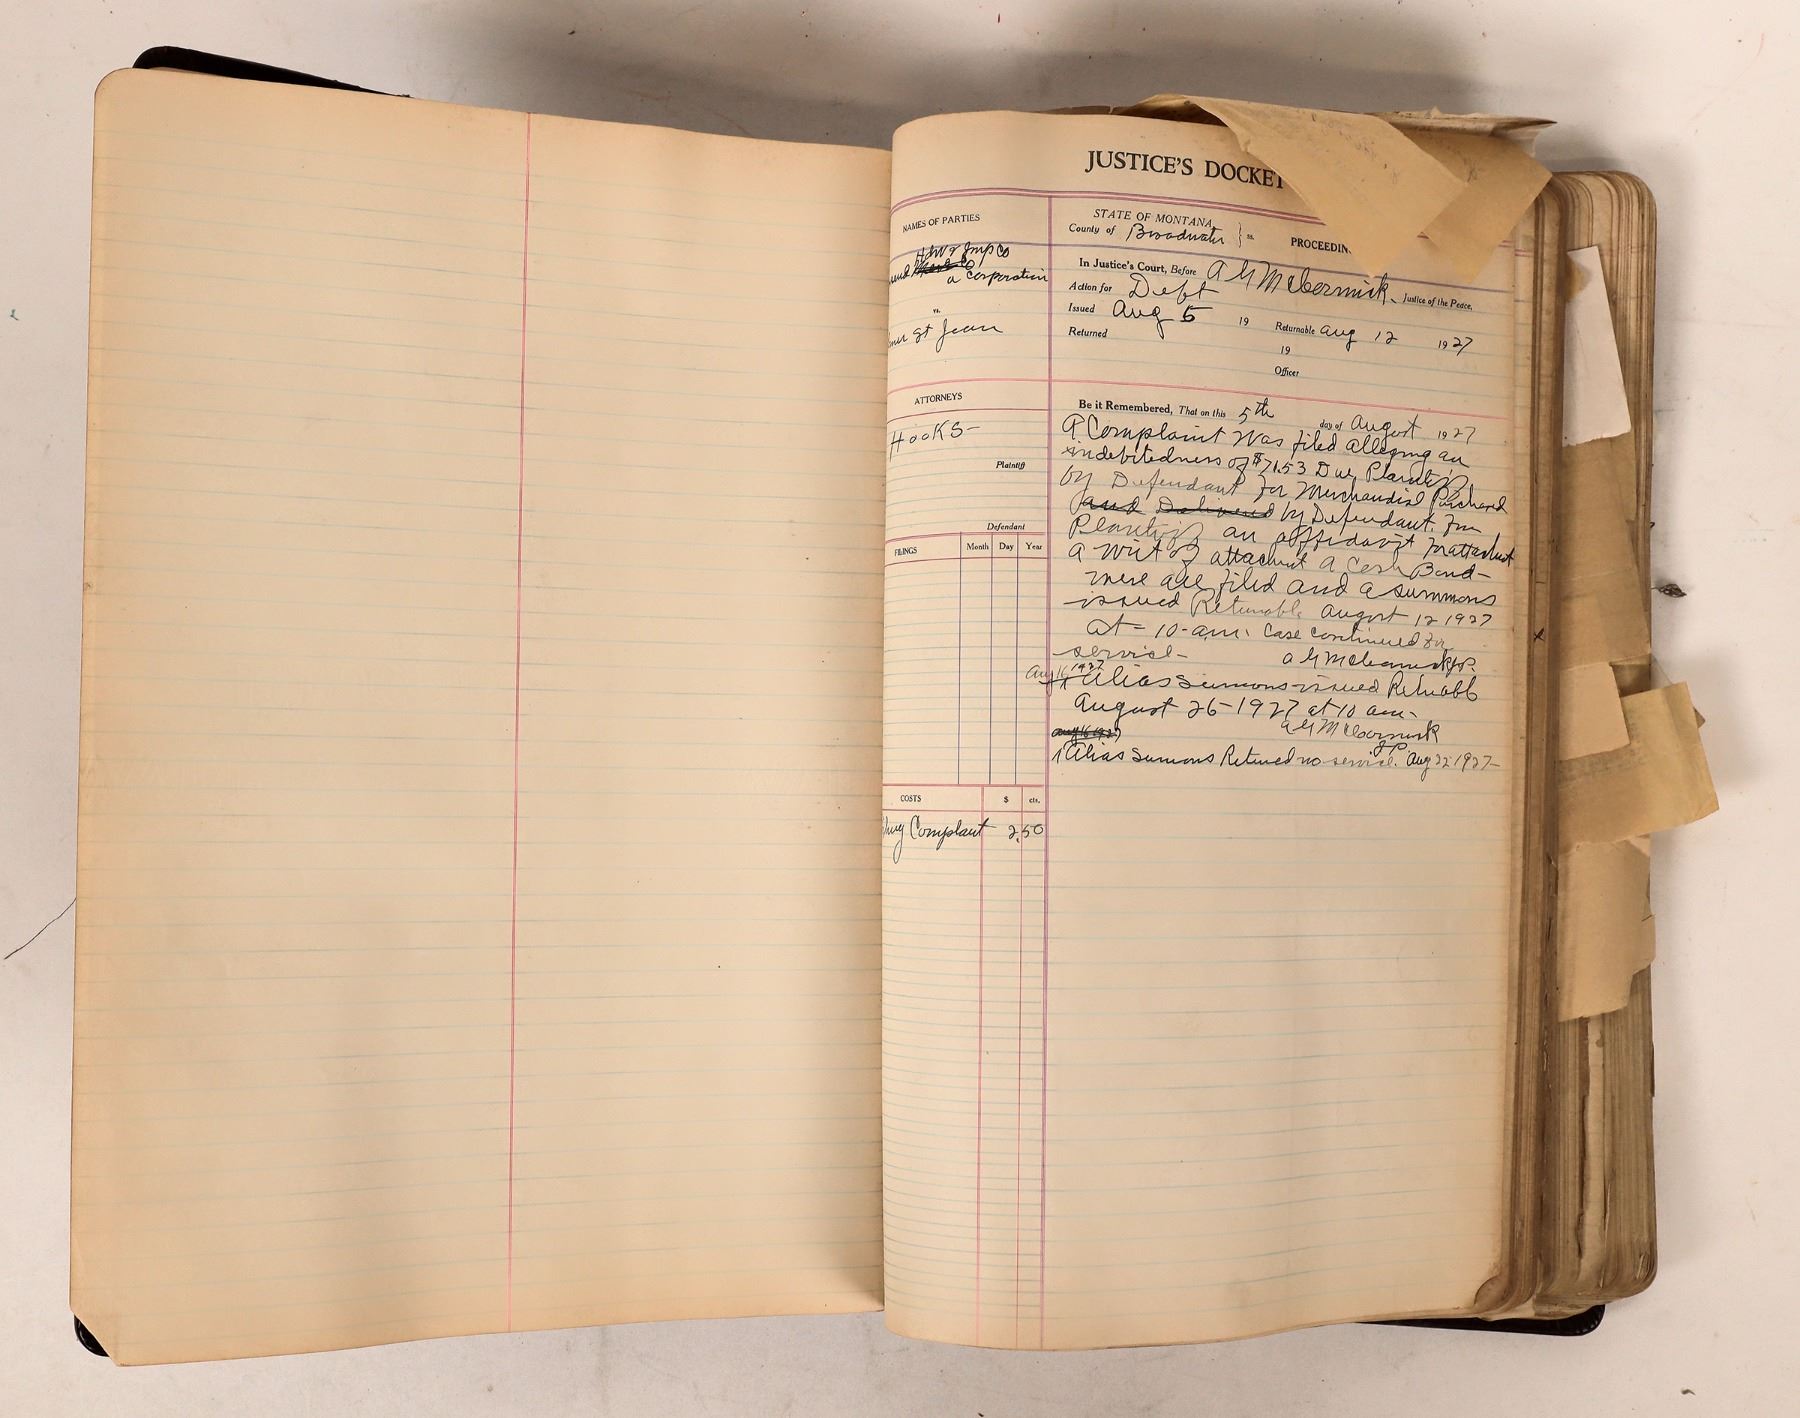 JUSTICE'S DOCKET
NAMES OF PARTIES
STATE OF MONTANA,
County of Broadwater } ss.
PROCEEDIN
Hdw & Imp Co
a Corporation
vs.
St Jean
In Justice's Court, Before A G McCormick, Justice of the Peace.
Action for Debt
Issued Aug 5 19 Returnable Aug 12 1927
Returned 19
Officer
ATTORNEYS
Hooks-
Plaintiff
Defendant
FILINGS Month Day Year
COSTS $ cts.
Complaint 2.50
Be it Remembered, That on this 5th day of August 1927
A Complaint was filed alleging an
indebitedness of $71.53 Due Plaintiff
by Defendant for Merchandise Purchased
and Delivered by Defendant. from
Plaintiff an affidavit for attachment
a writ of attachment a Bond-
were all filed and a summons
issued Returnable August 12 1927
at - 10-a.m. Case continued for
service- A G McCormick J.P.
Aug 16 1927 Alias Summons issued Retunabl
August 26-1927 at 10 am-
A G McCormick
J.P.
Aug 16 1927
1 Alias Sumons Retuned no service. Aug 22 1927-